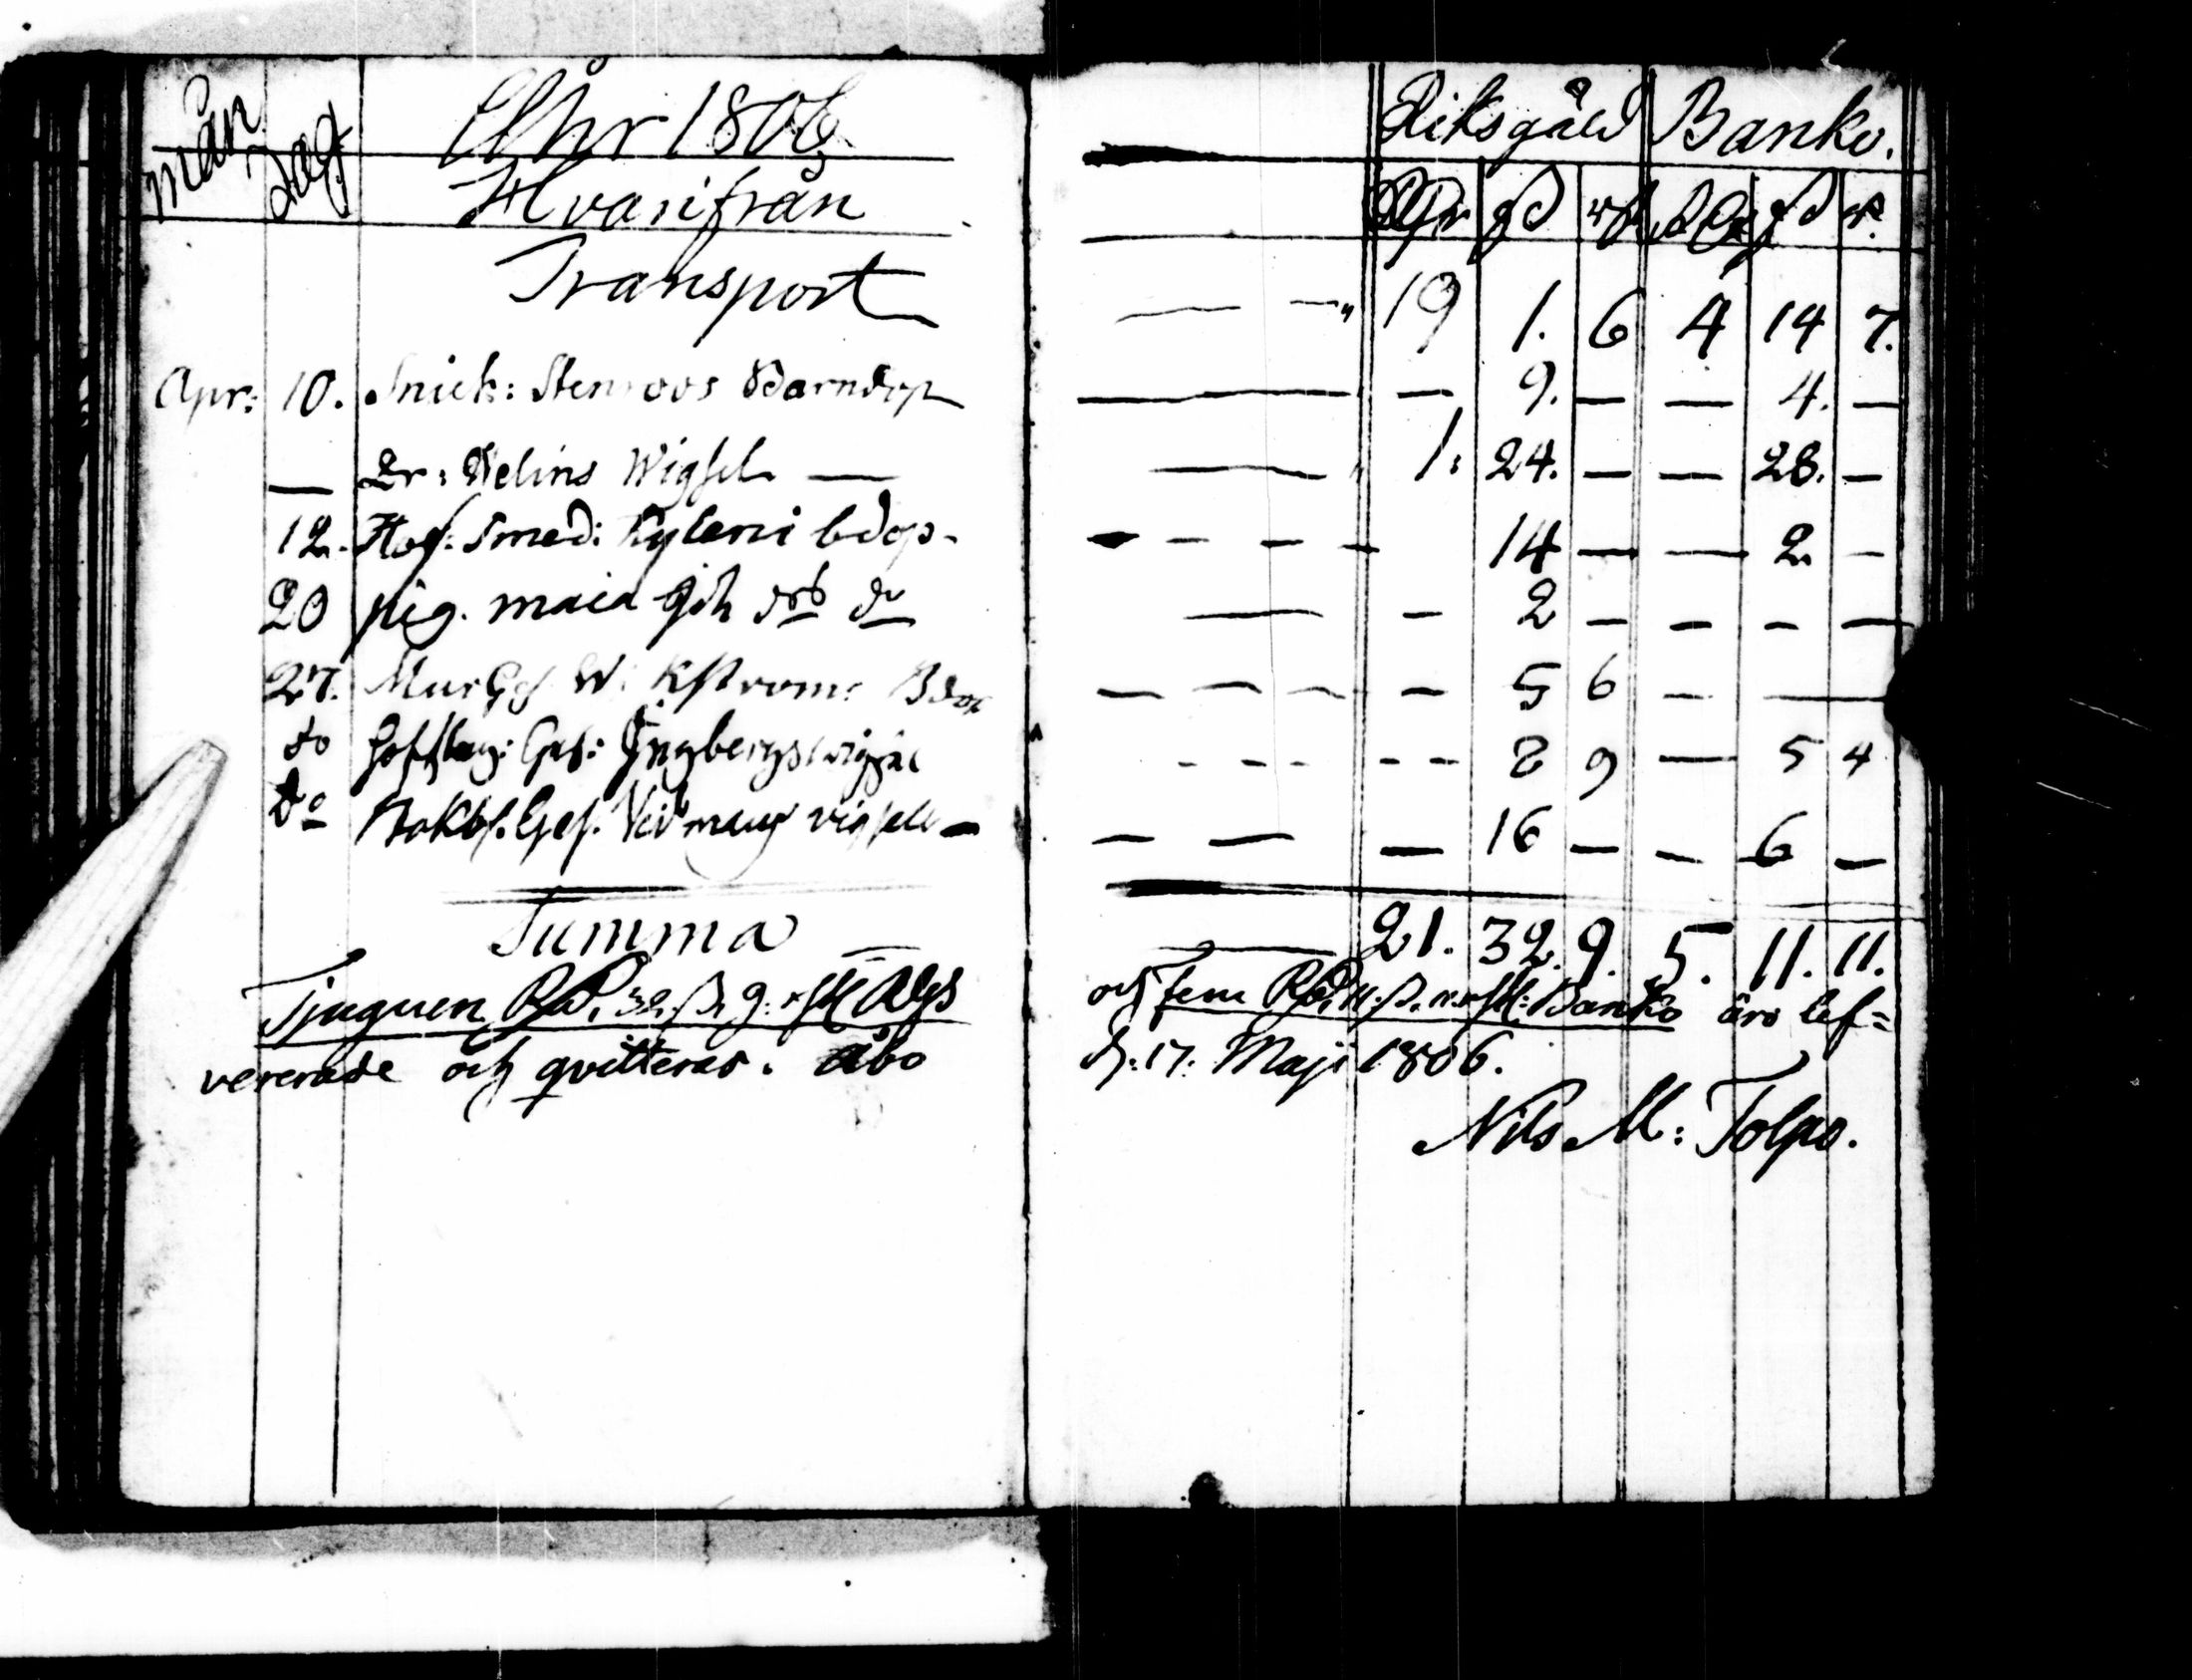 mån dag Åhr 1806 Riksgäld Banko.
Hvarifrån
Transport — — " 19 1. 6 4 14 7.
Apr: 10. Snick: Stenroos Barndop — — 9. — — 4. —
— Dr: Welins Wigsel — — 1: 24. — — 28. —
12. Hof: Smed: Bdop - — - - - 14 — — 2 —
20 pig. maia — - 2 - - - —
27. Mur Ges W: kströms Bdop — — — - 5 6 — —
do Ges: Engbergs wigsel - - - - - - 8 9 — 5 4
do Ges. vigsel — — — — 16 — — 6 —
Summa — — 21. 32. 9. 5. 11. 11.
Tjuguen Rd. 32. ß. 9. rst RGs och fem Rd. 11. ß. 11. rst: Banko äro lef=
vererade och qvitteras. Åbo d. 17. Maji 1806.
Nils M: Tolpo.